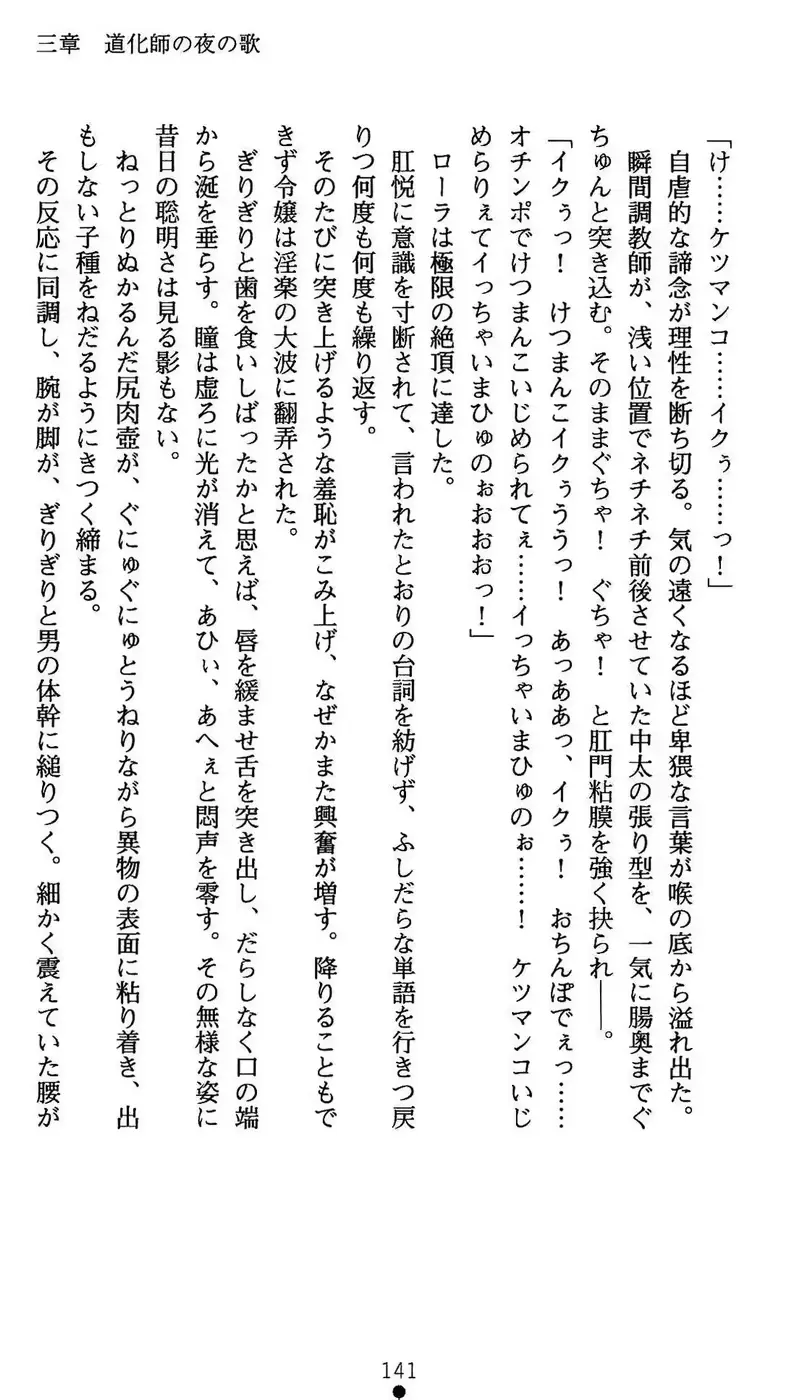 三章　道化師の夜の歌
「け……ケツマンコ……イクぅ……っ！」
　自虐的な諦念が理性を断ち切る。気の遠くなるほど卑猥な言葉が喉の底から溢れ出た。
　瞬間調教師が、浅い位置でネチネチ前後させていた中太の張り型を、一気に腸奥までぐ
ちゅんと突き込む。そのままぐちゃ！　ぐちゃ！　と肛門粘膜を強く抉られ――。
「イクぅっ！　けつまんこイクぅううっ！　あっああっ、イクぅ！　おちんぽでぇっ……
オチンポでけつまんこいじめられてぇ……イっちゃいまひゅのぉ……！　ケツマンコいじ
めらりぇてイっちゃいまひゅのぉおおおっ！」
　ローラは極限の絶頂に達した。
　肛悦に意識を寸断されて、言われたとおりの台詞を紡げず、ふしだらな単語を行きつ戻
りつ何度も何度も繰り返す。
　そのたびに突き上げるような羞恥がこみ上げ、なぜかまた興奮が増す。降りることもで
きず令嬢は淫楽の大波に翻弄された。
　ぎりぎりと歯を食いしばったかと思えば、唇を緩ませ舌を突き出し、だらしなく口の端
から涎を垂らす。瞳は虚ろに光が消えて、あひぃ、あへぇと悶声を零す。その無様な姿に
昔日の聡明さは見る影もない。
　ねっとりぬかるんだ尻肉壺が、ぐにゅぐにゅとうねりながら異物の表面に粘り着き、出
もしない子種をねだるようにきつく締まる。
　その反応に同調し、腕が脚が、ぎりぎりと男の体幹に縋りつく。細かく震えていた腰が
141